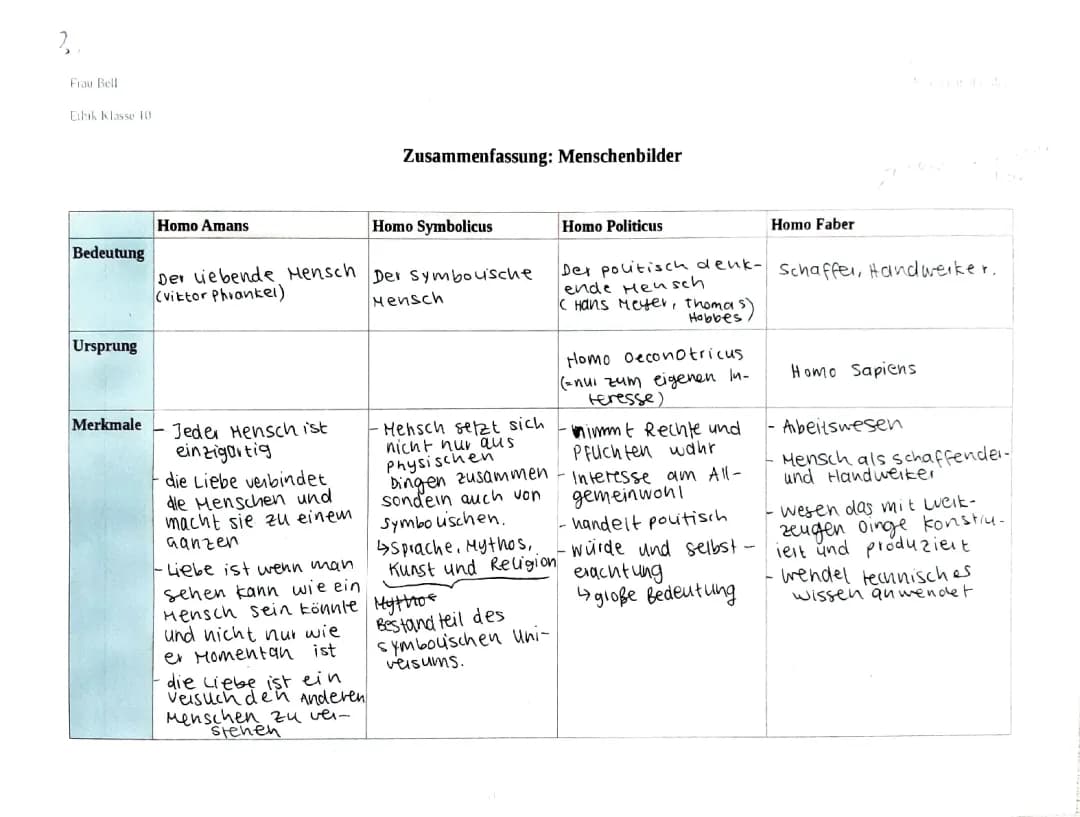 2.
Frau Bell
Ethik Klasse 10
Zusammenfassung: Menschenbilder
Homo Amans
Homo Symbolicus
Homo Politicus
Homo Faber
Bedeutung
Der liebende Mensch
(Viktor Phrankel)
Der symbolische
Mensch
Der politisch denk-
ende Mensch
( Hans Meyer, Thomas
Hobbes)
Schaffer, Handwerker.
Ursprung
Homo Oeconotricus
(=nur zum eigenen In-
teresse)
Homo Sapiens
Merkmale
- Jeder Mensch ist
einzigartig
- die Liebe verbindet
die Menschen und
macht sie zu einem
ganzen
- Liebe ist wenn man
sehen kann wie ein
Mensch sein könnte
und nicht nur wie
er Momentan ist
- die Liebe ist ein
versuch den Anderen
Menschen zu ver-
stehen
- Mensch setzt sich
nicht nur aus
physischen
Dingen zusammen
sondern auch von
symbolischen.
↳Sprache, Mythos,
Kunst und Religion
Mythos
Bestandteil des
symbolischen Uni-
versums.
- nimmt Rechte und
Pflichten wahr
- Interesse am All-
gemeinwohl
- handelt politisch
- würde und selbst-
erachtung
↳ große Bedeutung
- Arbeitswesen
- Mensch als schaffender-
und Handwerker
- wesen das mit Werk-
zeugen Dinge konstru-
iert und produziert
- wendet technisches
wissen anwendet